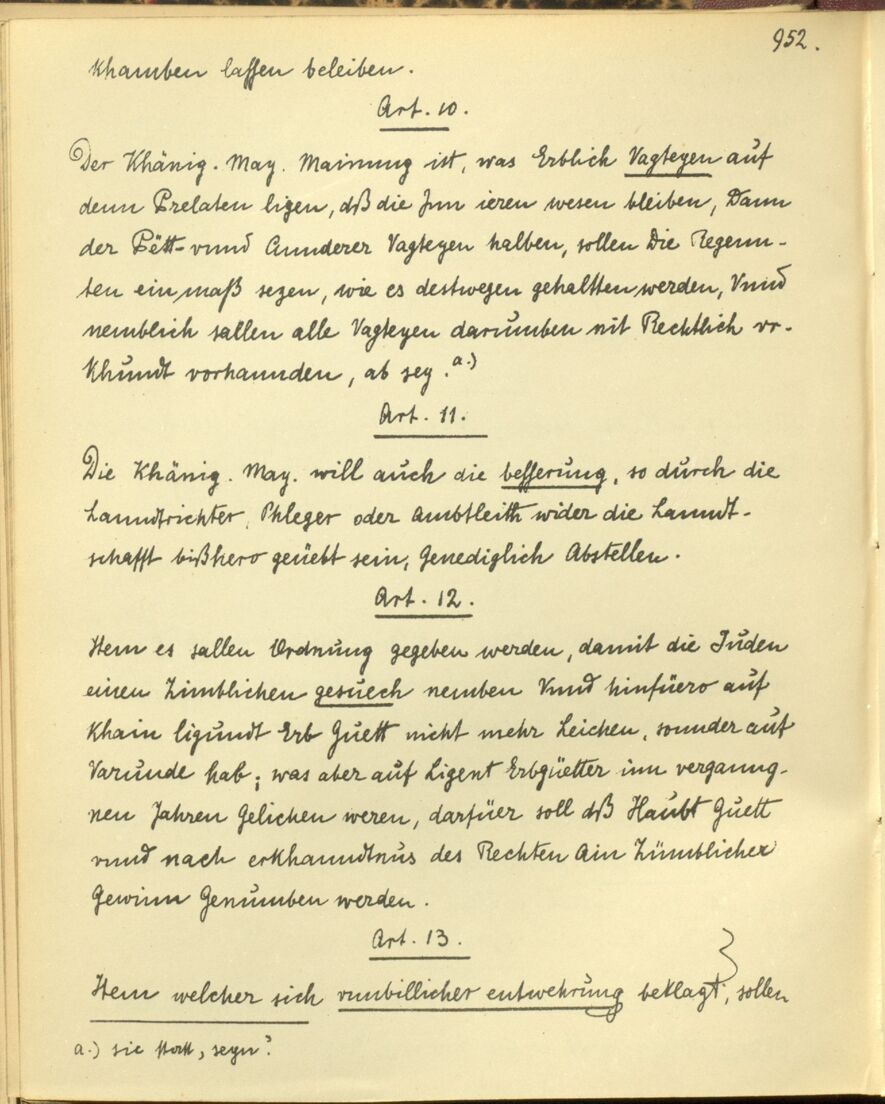 952.
Khamben lassen beleiben.
Art. 10.
Der Khänig. May. Mainung ist, was Erblich Vagteyen auf
denn Prelaten ligen, dß die Inn ieren wesen bleiben, Dann
der Pëtt- vnnd Annderer Vagteyen halben, sollen Die Regenn-
ten ein maß sezen, wie es destwegen gehaltten werden, Vnnd
nemblich sallen alle Vagteyen darumben nit Rechtlich vr-
Khundt vorhannden, ab sey. a.)
Art. 11.
Die Khänig. May. will auch die besserung, so durch die
Lanndtrichter, Phleger oder Ambtleith wider die Lanndt-
schafft bißhero geüebt sein, Genediglich Abstellen.
Art. 12.
Item es sallen Ordnung gegeben werden, damit die Juden
einen Zimblichen gesuech nemben Vnnd hinfüero auf
Khain ligundt Erb Guett nicht mehr Leichen, sonnder auf
Varunde hab; was aber auf Ligent Erbgüetter inn verganng-
nen Jahren Gelichen weren, darfüer soll dß Haubt Guett
vnnd nach erkhanndtnus des Rechten Ain Zümblicher
Gewinn Genumben werden.
Art. 13.
Item welcher sich vnnbillicher entwehrung beklagt, sollen
a.) sic statt, seyn?